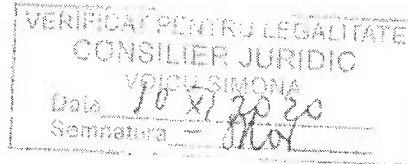 VERIFICAT PENTRU LEGALITATE
CONSILIER JURIDIC
VOICU SIMONA
Data 10 XI 2020
Semnatura